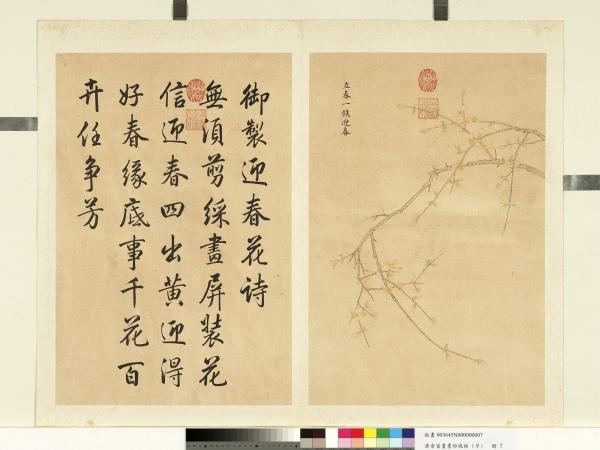 御製迎春花詩
無須剪綵畫屏裝花
信迎春四出黃迎得
好春緣底事千花百
卉任争芳
立春一候迎春
故畫 003645N000000007